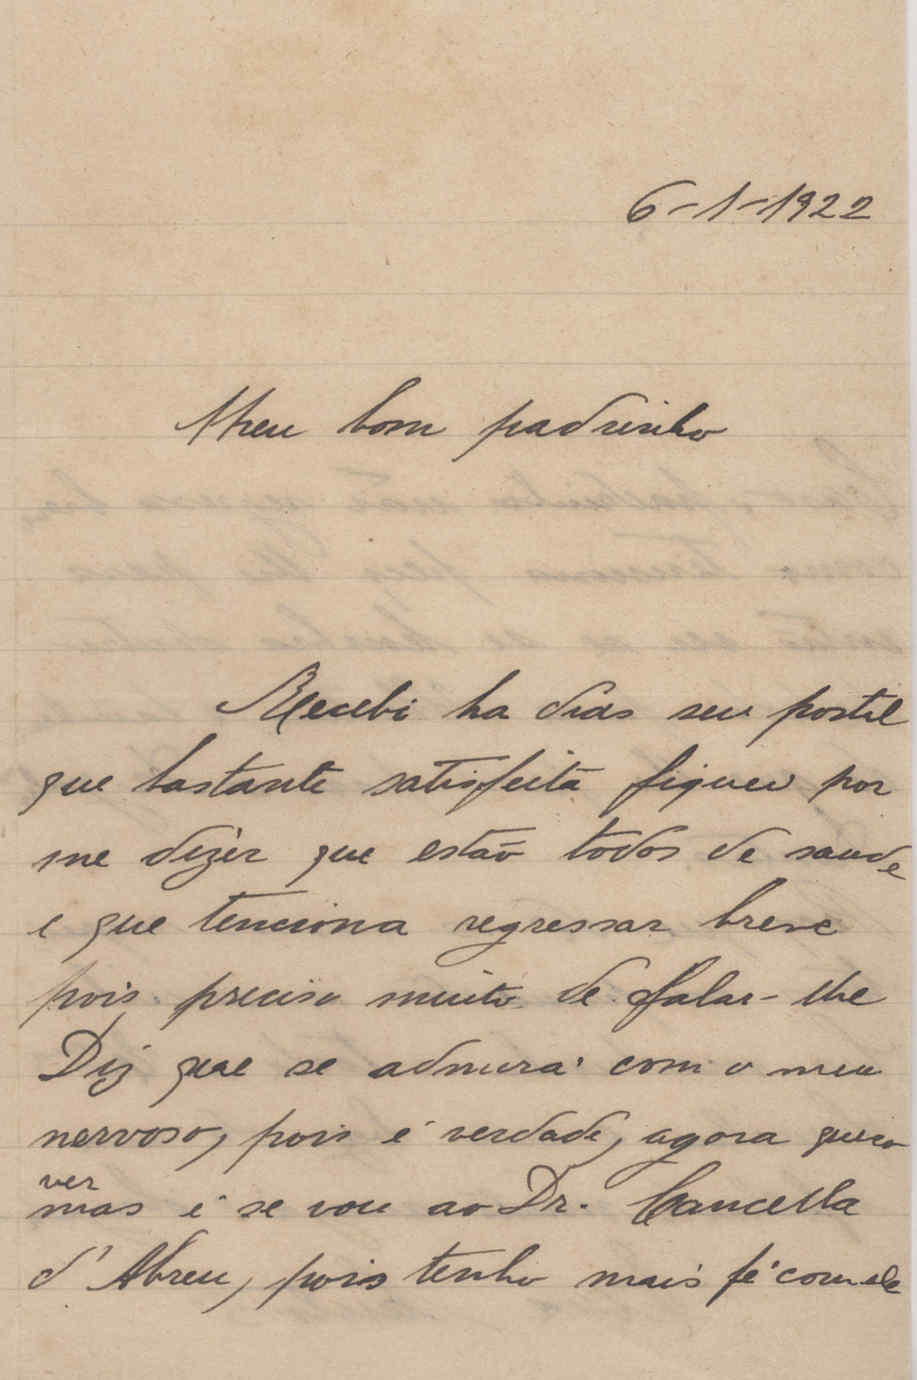 6-1-1922
Meu bom padrinho
Recebi ha dias seu postal
que bastante satisfeita fiquei por
me dizer que estão todos de saude
e que tenciona regressar breve
pois preciso muito de falar-lhe
Diz que se admira com o meu
nervoso, pois é verdade, agora quero
ver
mas é se vou ao Dr. Cancella
d'Abreu, pois tenho mais fé com ele